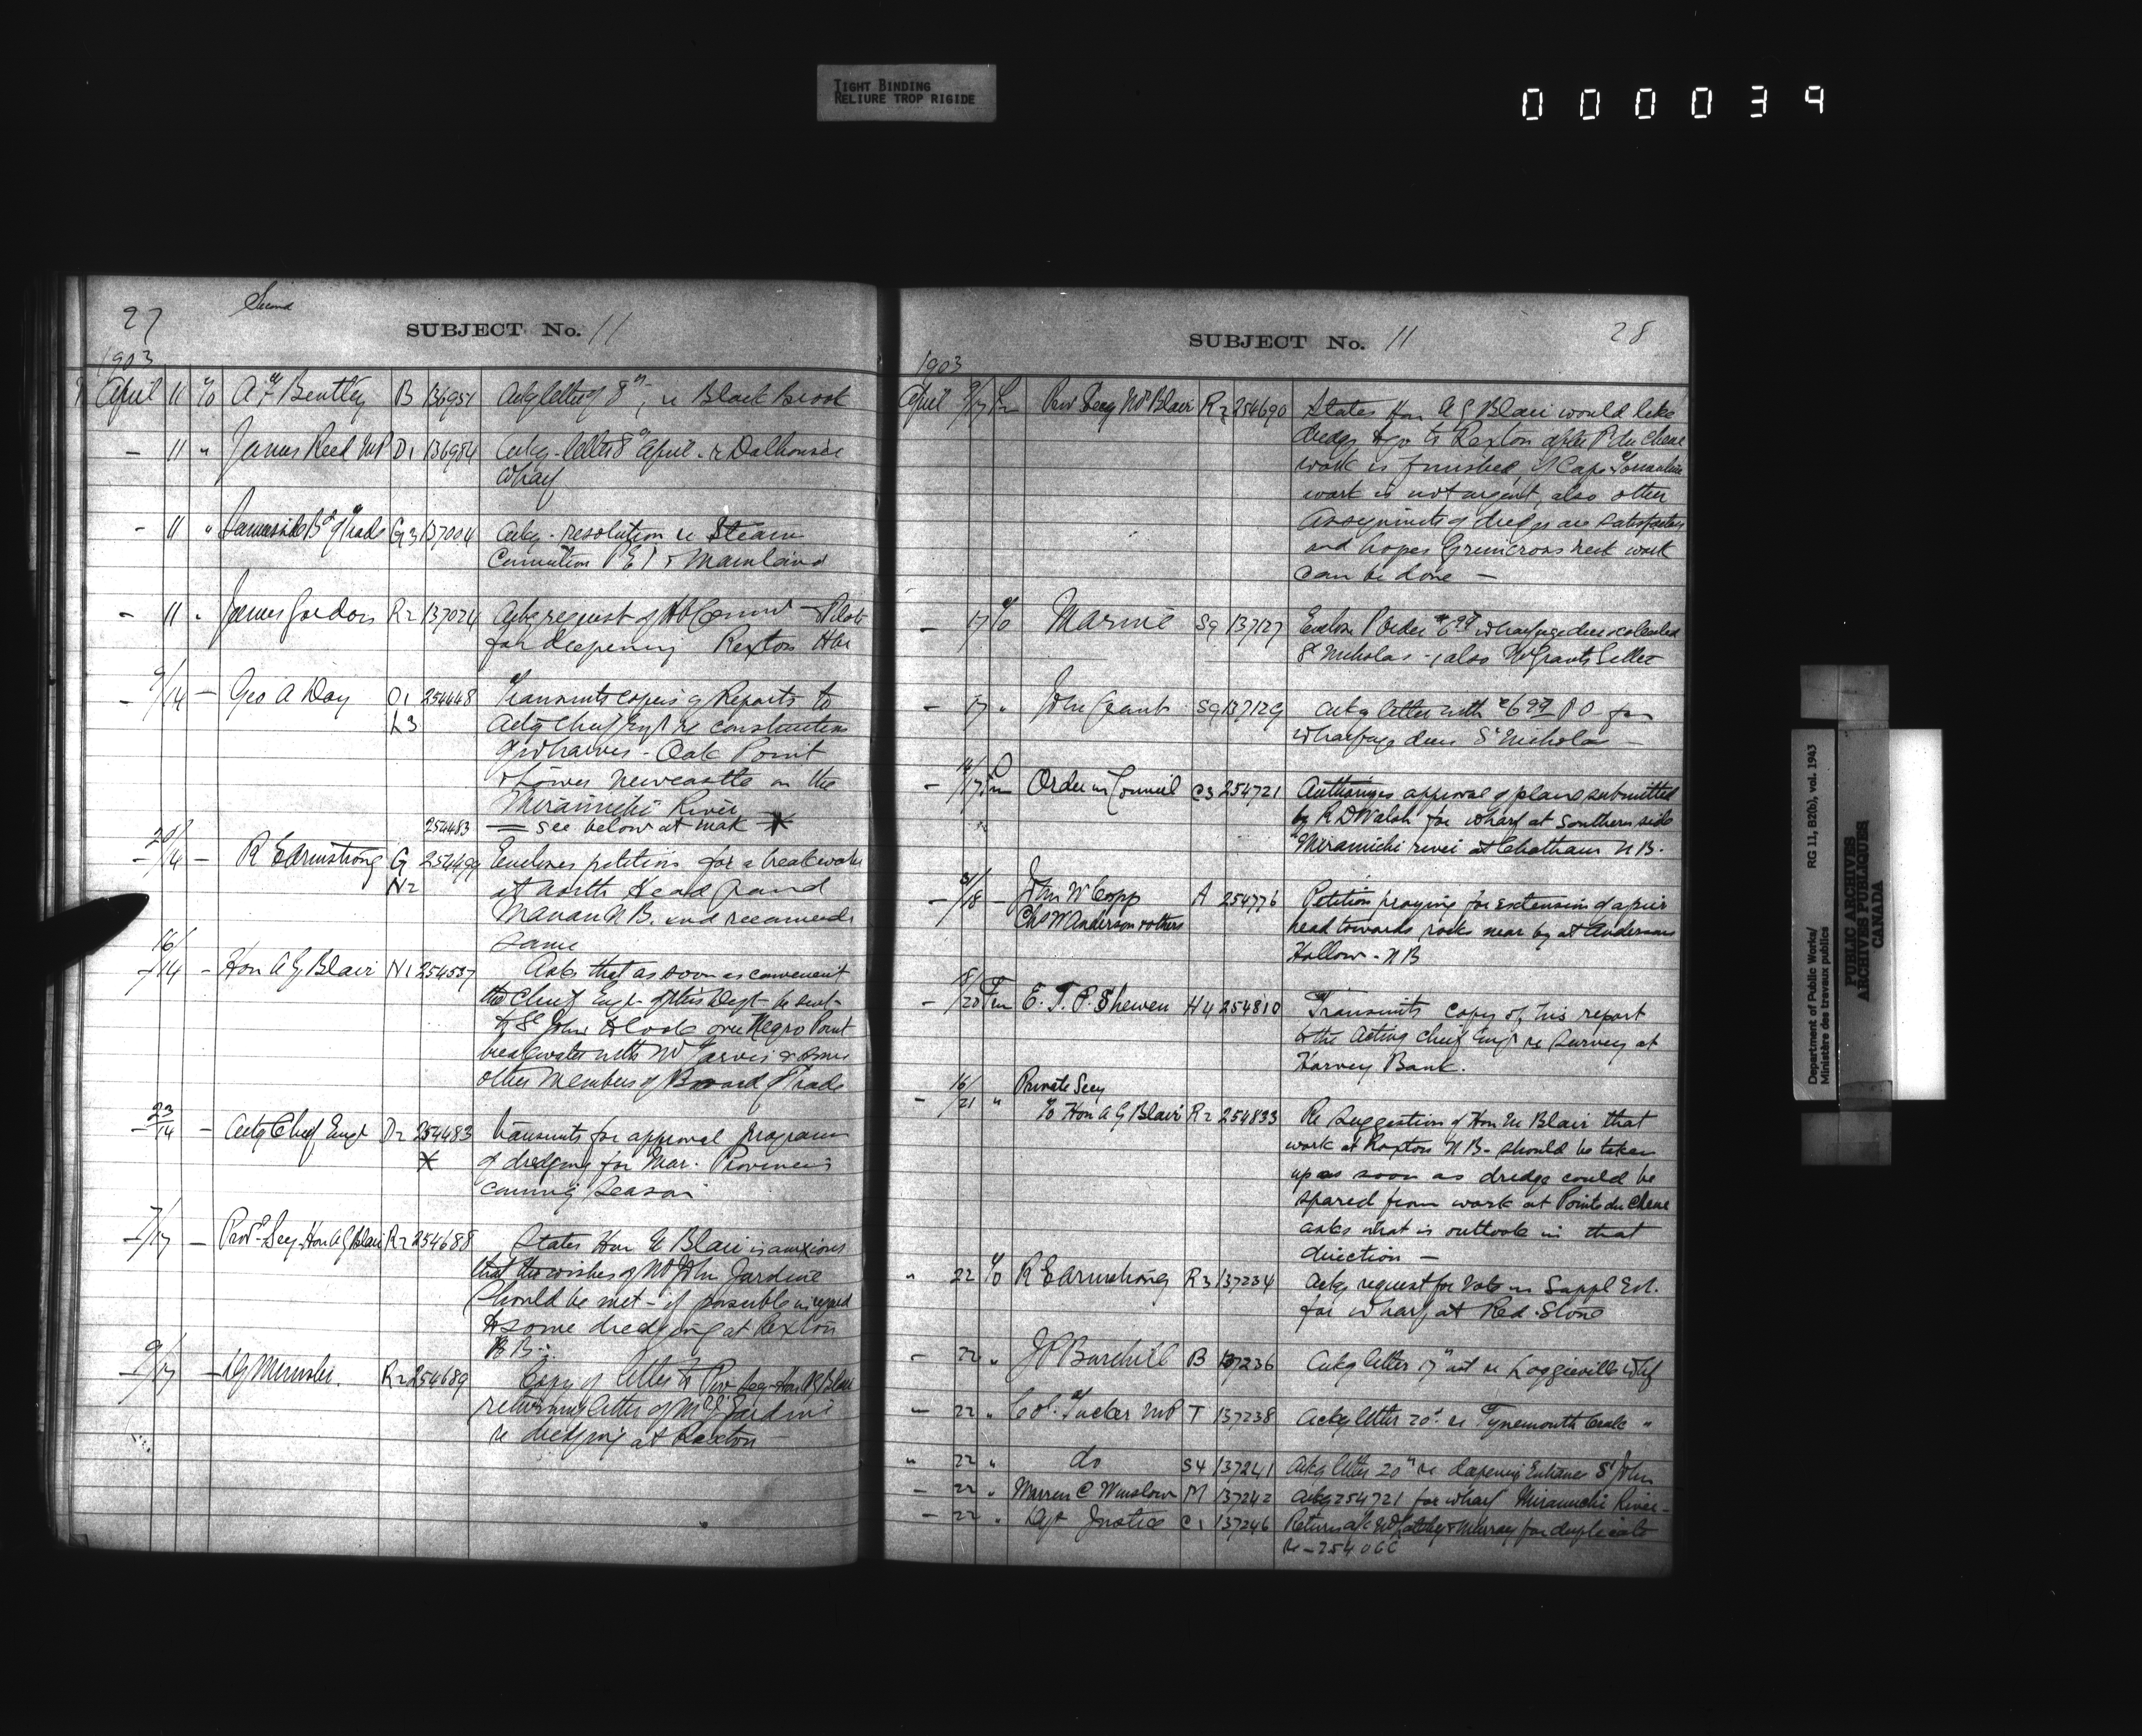 TIGHT BINDING
RELIURE TROP RIGIDE
000039
27
Second
SUBJECT No. 11
1903
April 11 To A F Bentley B 136951 Ackg letter of 8th, re Black Brook
- 11 " James Reid MP D1 136984 Ackg letter 8 April re Dalhousie
Wharf
- 11 " Summerside Bd of Trade G3 137004 Ackg resolution re Steam
PEI & Mainland
- 11 " James Gordon R2 137024 Ackg request of
for deepening Rexton Har
- 9/14 - Geo A Day O1 254448 Transmits copies of Reports to
L3 Actg Chief Engr re construction
of wharves - Oak Point
& Lower Newcastle on the
Miramichi River
254483 = see below at mark *
- 28/14 - R E Armstrong G 254499 Encloses petition for a breakwater
N2 at North Head Grand
Manan N.B. and recommends
same
- 16/14 - Hon A G Blair N1 254537 Asks that as soon as convenient
the Chief Engr of this Dept be sent
to St John to look over Negro Point
breakwater with Mr Jarvis & some
other Members of Board of Trade
- 23/14 - Actg Chief Engr D2 254483 Transmits for approval program
* of dredging for Mar. Provinces
coming Season
- 7/17 - Priv Secy Hon A G Blair R2 254688 States Hon Mr Blair is anxious
that the wishes of Mr John Jardine
should be met - if possible in regard
to some dredging at Rexton
N B -
- 9/17 - Minister. R2 254689 Copy of letter to Priv Secy Hon A G Blair
returning letter of Jardine
re dredging at Rexton -
SUBJECT No. 11
28
1903
April 9/17 Fm Priv Secy Mr Blair R2 254690 States Hon A G Blair would like
dredge to go to Rexton after P. du Chene
work is finished, if Cape Tormentine
work is not urgent, also other
assignments of dredges are satisfactory
and hopes Grimcross Neck work
can be done -
- 17 To Marine S9 137127 Enclose P Order $6.99 wharfage dues collected
St Nicholas - also Mr Grants Letter
- 17 " John Grant S9 137129 Ackg letter with $6.99 P O for
wharfage dues St Nicholas -
- 14/17 Fm Order in Council C3 254721 Authorizes approval of plans submitted
by R D Walsh for wharf at Southern side
Miramichi river at Chatham N B.
- /18 - John W Copp A 254776 Petition praying for extension of a pier
Chs W Anderson & others head towards rocks near by at Andersons
Hollow - N B
- 8/20 Fm E. T. P. Shewen H4 254810 Transmits copy of his report
to the Acting Chief Engr re Survey at
Harvey Bank.
- 16/21 " Private Secy
To Hon A G Blair R2 254833 Re Suggestion of Hon Mr Blair that
work at Rexton N B - should be taken
up as soon as dredge could be
spared from work at Point du Chene
asks what is outlook in that
direction -
" 22 To R E Armstrong R3 137234 Ackg request for Vote in Suppl Est.
for wharf at Red Store
- 22 " J P Burchill B 137236 Ackg letter 17" inst re Loggieville Whf
- 22 " Col. Tucker MP T 137238 Ackg letter 20" re Tynemouth Creek "
" 22 " do S4 137241 Ackg letter 20" re deepening Entrance St John
- 22 " Warren C Winslow M 137242 Ackg 254721 for wharf Miramichi River -
- 22 " Dept Justice C1 137246 Returns & Murray for duplicate
re - 254066
Department of Public Works/ RG 11, B2(b), vol. 1943
Ministère des travaux publics
PUBLIC ARCHIVES
ARCHIVES PUBLIQUES
CANADA